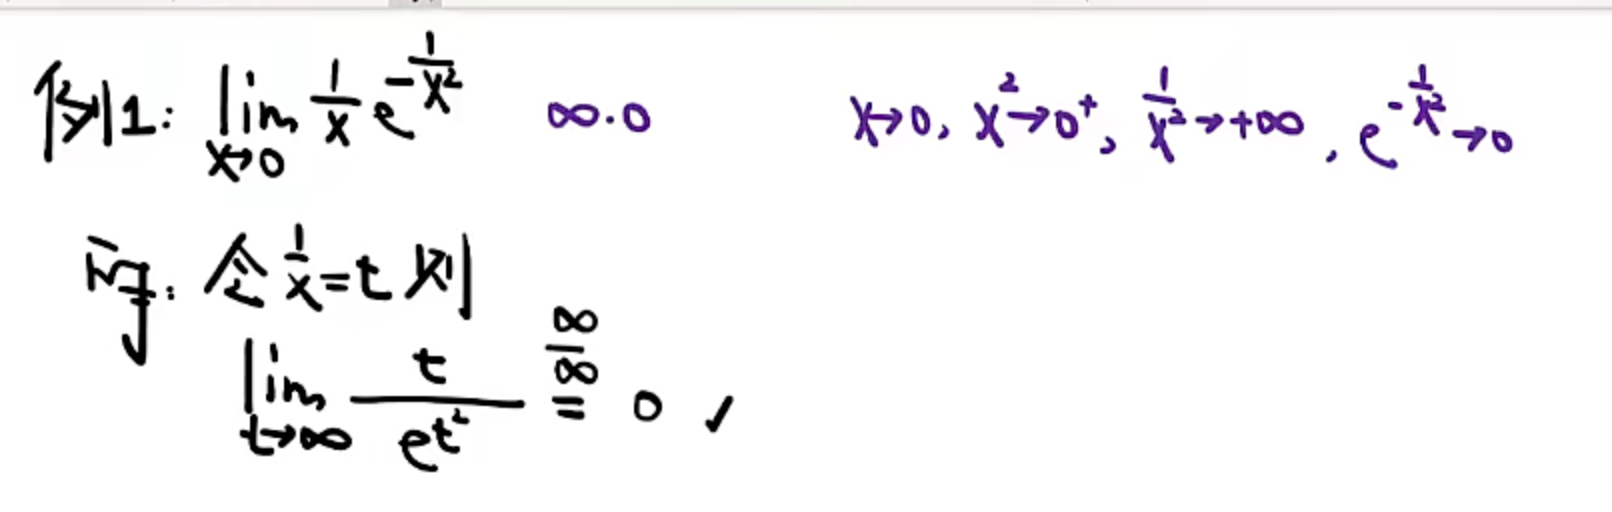 例1: lim_{x→0} 1/x e^{-1/x²} ∞·0 x→0, x²→0⁺, 1/x²→+∞, e^{-1/x²}→0
令 1/x = t 则
lim_{t→∞} t/e^{t²} \overset{∞/∞}{=} 0 ✓